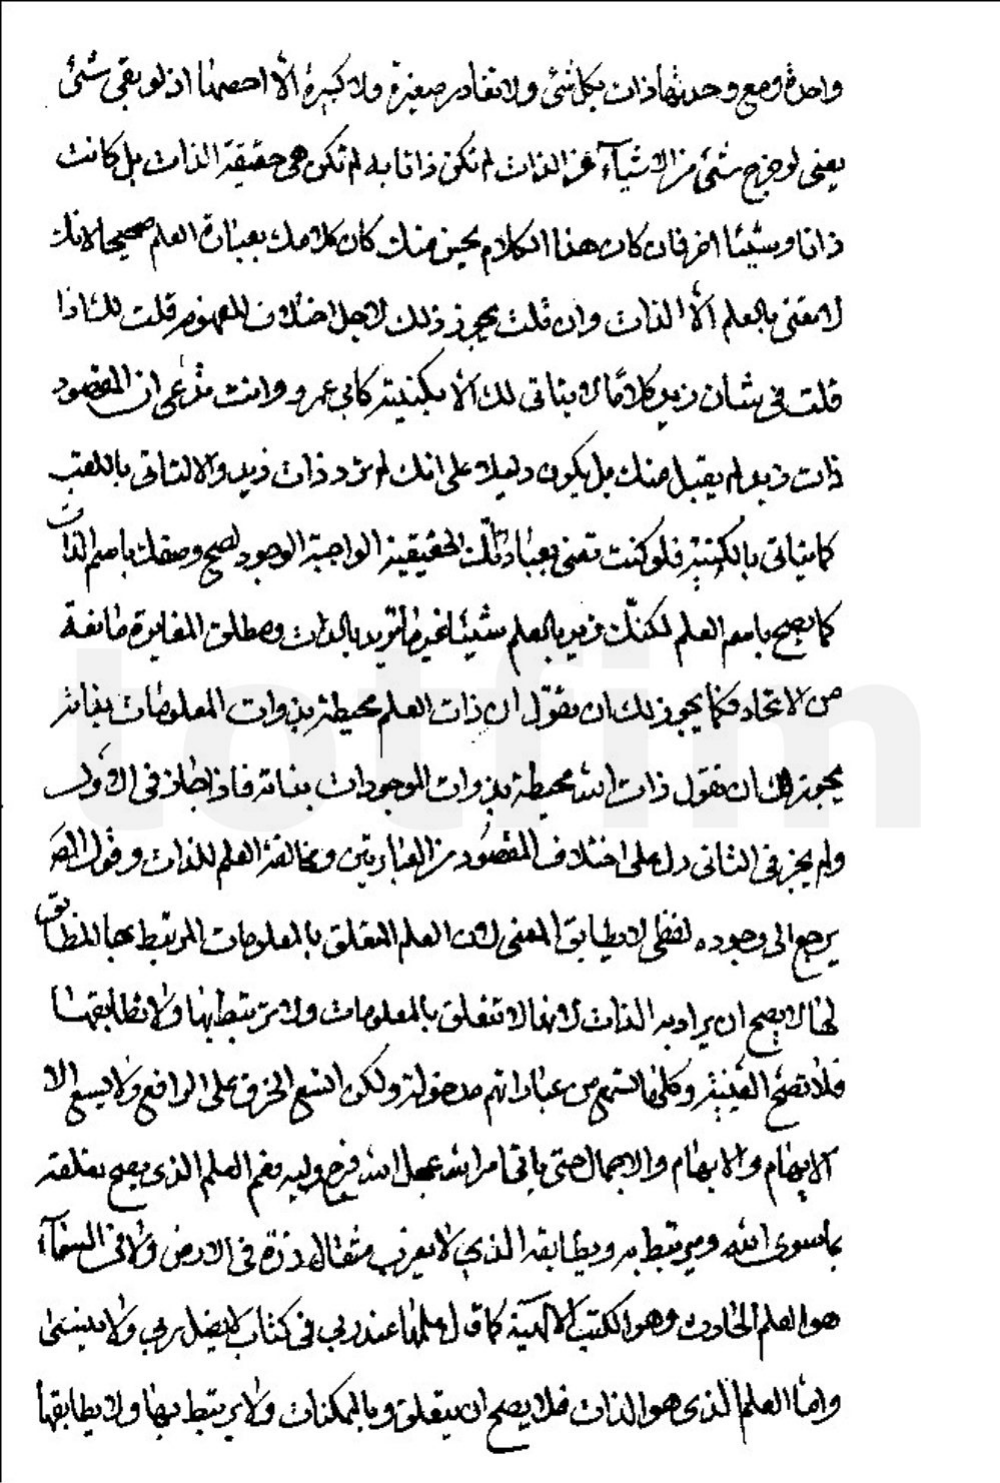 واحدة ومع وحدتها ذات بكل شئ ولا تغادر صغيرة ولا كبيرة الا احصاها اذ لو بقى شئ
يعنى لو خرج شئ من الاشيآء عن الذات لم تكن ذاتا به لم تكن هى حقيقة الذات بل كانت
ذاتا وشيئا اخر فان كان هذا الكلام يحسن منك كان كلامك بعبارة العلم صحيحا لانك
لا تعنى بالعلم الا الذات وان قلت يجوز ذلك لاجل اختلاف المفهوم قلت لك اذا
قلت فى شأن زيد كلاما لا يتاتى لك الا بكنيته كابى عمرو وانت تدعى ان المقصود
ذات زيد لم يقبل منك بل يكون دليلا على انك لم ترد ذات زيد والا لتاتى باللقب
كما يتاتى بالكنية فلو كنت تعنى بعباراتك الحقيقية الواجبة الوجود لصح وصفك باسم الذات
كما يصح باسم العلم لكنك تريد بالعلم شيئا غير ما تريد بالذات ومطلق المغايرة مانعة
من الاتحاد فكما يجوز لك ان تقول ان ذات العلم محيطة بذوات المعلومات بذاته
يجوز لك ان تقول ذات الله محيطة بذوات الموجودات بذاته فاذا جاز فى الاول
ولم يجز فى الثانى دل على اختلاف المقصود من العبارتين ومخالفة العلم للذات وقول المص
يرجع الى وجوده لفظى لا يطابق المعنى لان العلم المتعلق بالمعلومات المرتبط بها المطابق
لها لا يصح ان يراد به الذات لانها لا تتعلق بالمعلومات ولا ترتبط بها ولا تطابقها
فلا تصح العينية وكلما تسمع من عباراتهم مدخولة ولكن اتسع الخرق على الراقع ولا يسع الا
الايهام والابهام والاجمال حتى ياتى امر الله عجل الله فرج وليه نعم العلم الذى يصح تعلقه
بما سوى الله ويرتبط به ويطابقه الذي لا يعزب مثقال ذرة فى الارض ولا فى السمآء
هو العلم الحادث وهو الكتب الالهية كما قال علمها عند ربي فى كتاب لا يضل ربي ولا ينسى
واما العلم الذى هو الذات فلا يصح ان يتعلق وبالممكنات ولا يرتبط بها ولا يطابقها